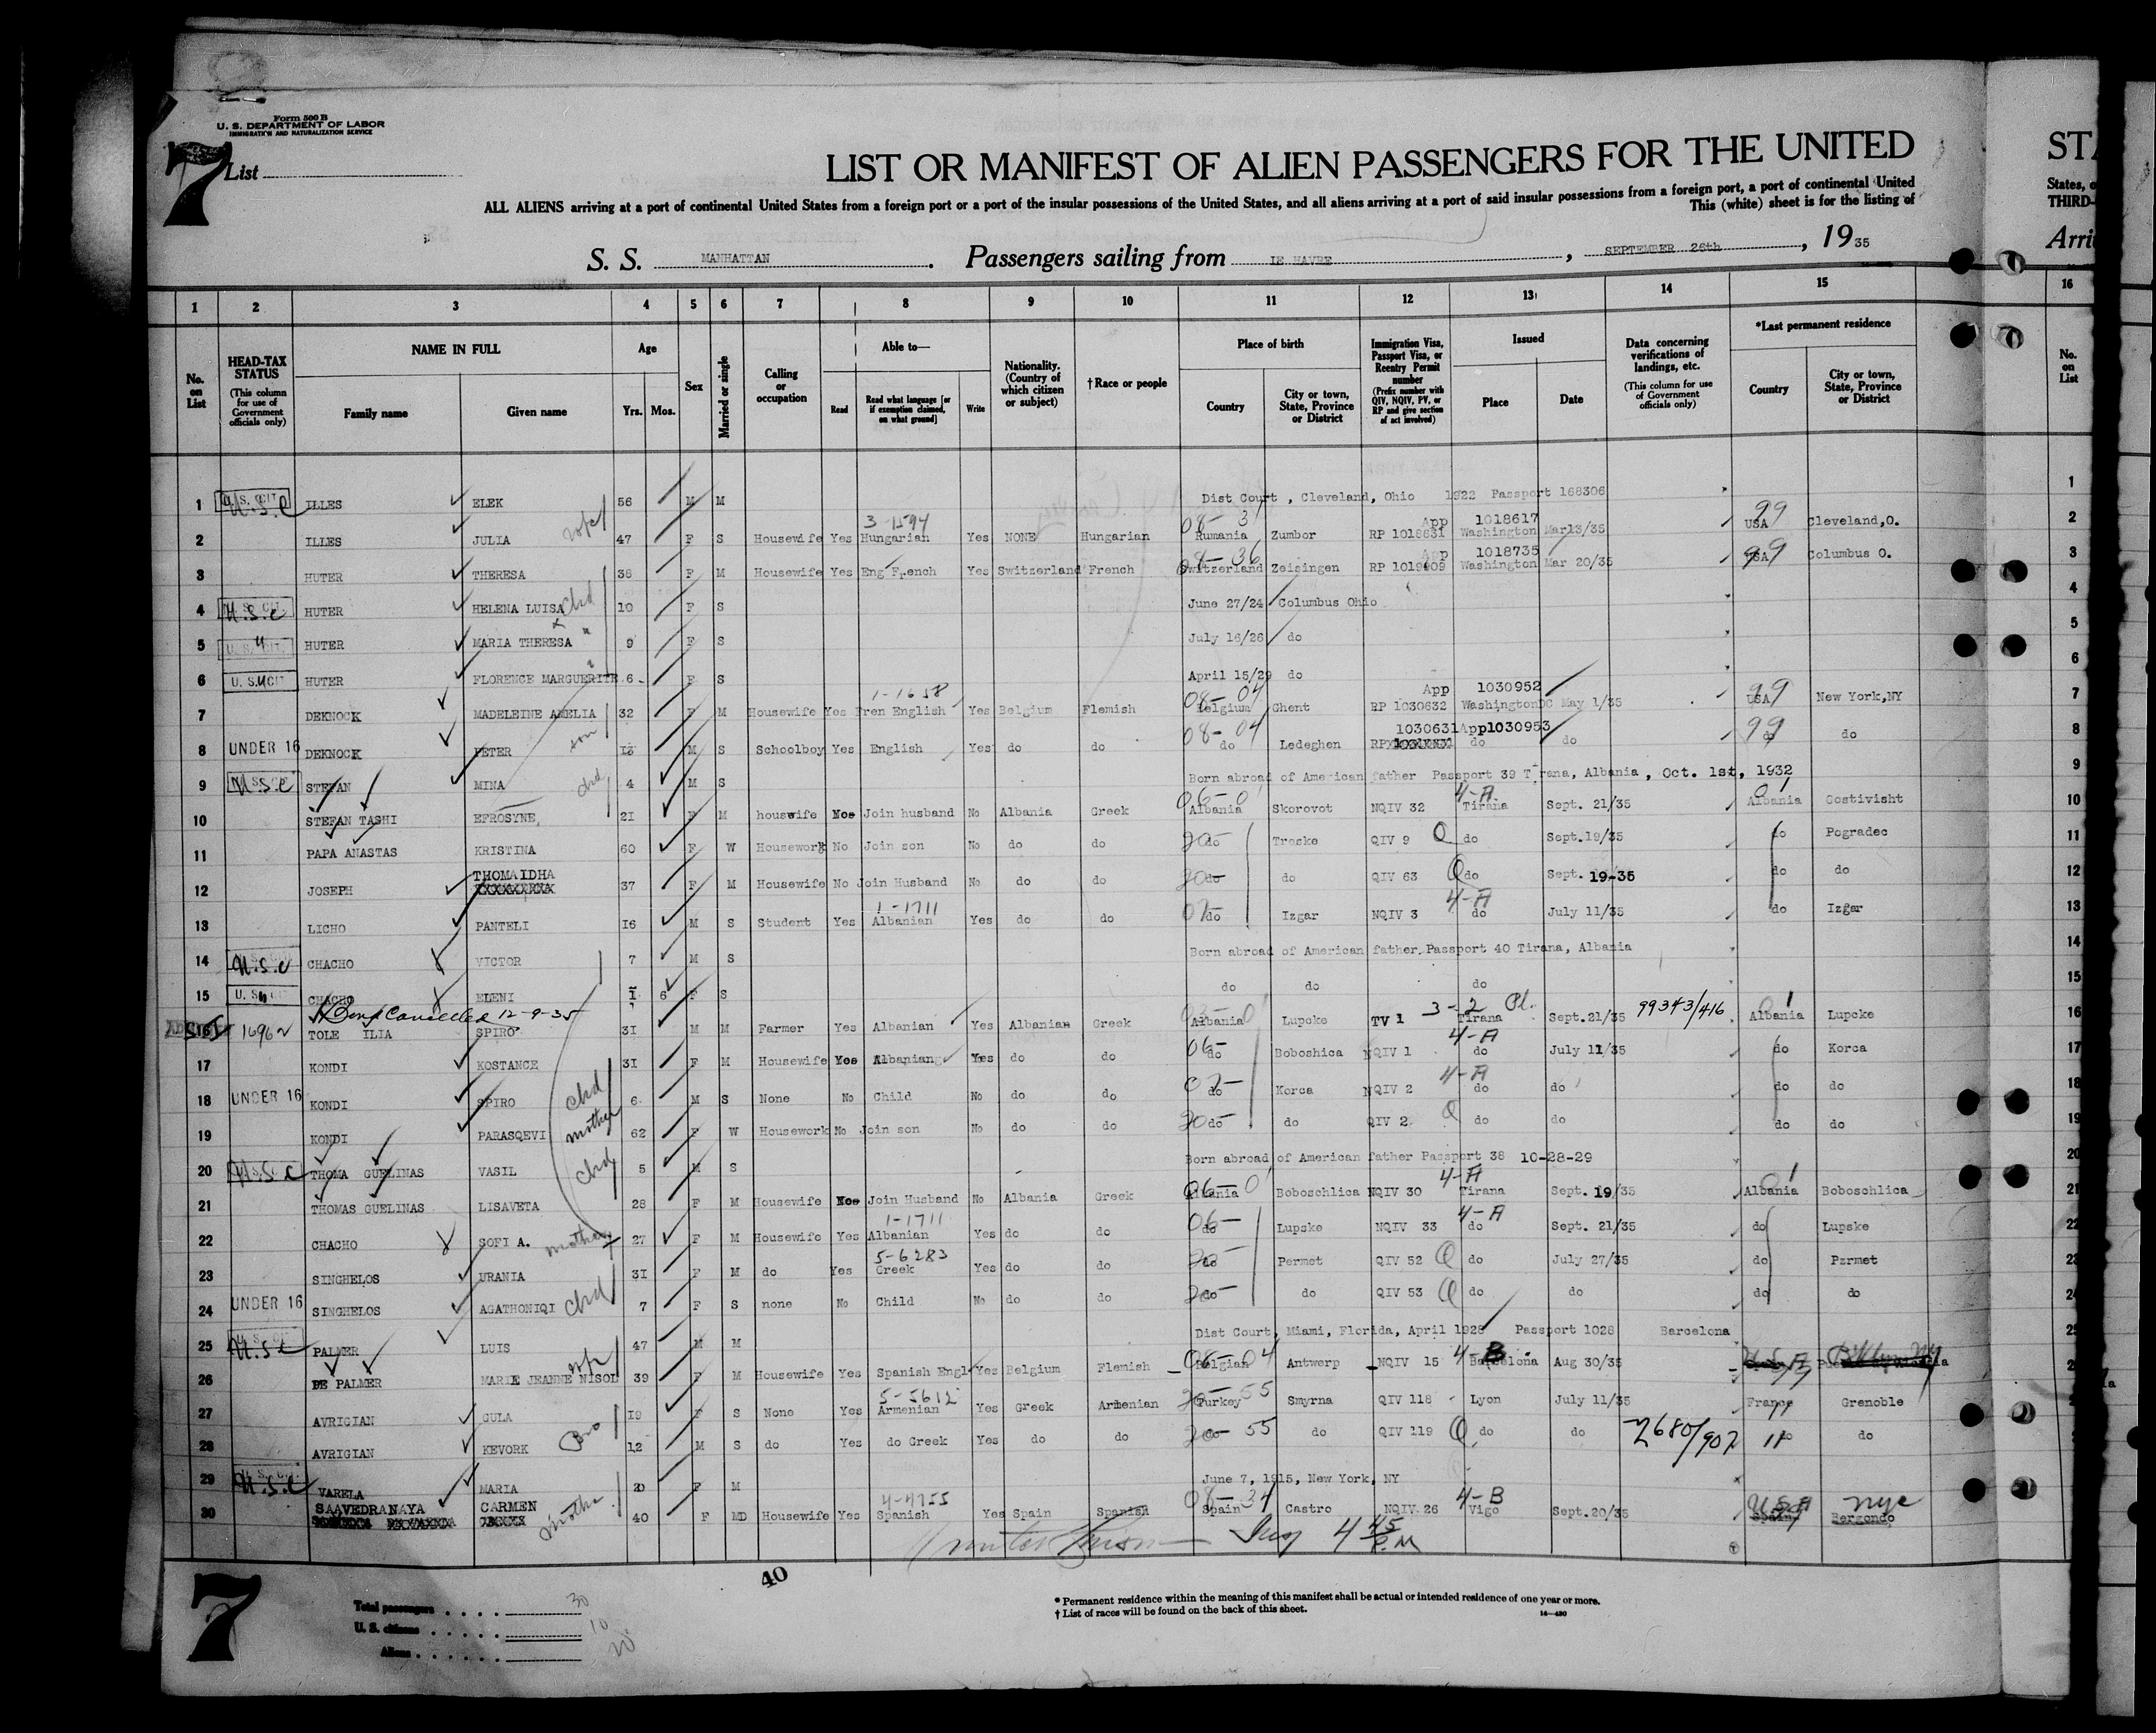 Form 500 B
U. S. DEPARTMENT OF LABOR
IMMIGRATION AND NATURALIZATION SERVICE
7 List
LIST OR MANIFEST OF ALIEN PASSENGERS FOR THE UNITED STA
ALL ALIENS arriving at a port of continental United States from a foreign port or a port of the insular possessions of the United States, and all aliens arriving at a port of said insular possessions from a foreign port, a port of continental United States, o
This (white) sheet is for the listing of THIRD-
S. S. MANHATTAN . Passengers sailing from LE HAVRE , SEPTEMBER 26th , 19 35 Arri
1 2 3 4 5 6 7 8 9 10 11 12 13 14 15 16
No. on List
HEAD-TAX STATUS (This column for use of Government officials only)
NAME IN FULL Family name Given name
Age Yrs. Mos.
Sex
Married or single
Calling or occupation
Able to— Read Read what language [or if exemption claimed, on what ground] Write
Nationality. (Country of which citizen or subject)
† Race or people
Place of birth Country City or town, State, Province or District
Immigration Visa, Passport Visa, or Reentry Permit number (Prefix number with QIV, NQIV, PV, or RP and give section of act involved)
Issued Place Date
Data concerning verifications of landings, etc. (This column for use of Government officials only)
*Last permanent residence Country City or town, State, Province or District
No. on List
1 U. S. CIT U.S.C ILLES ELEK 56 M M Dist Court , Cleveland, Ohio 1922 Passport 168306 1
3-1594 08-31 App 1018617 99
2 ILLES JULIA wife 47 F S Housewife Yes Hungarian Yes NONE Hungarian Rumania Zumbor RP 1018631 Washington Mar13/35 USA Cleveland,O. 2
08-36 App 1018735 99
3 HUTER THERESA 36 F M Housewife Yes Eng French Yes Switzerland French Switzerland Zeisingen RP 1019609 Washington Mar 20/35 USA Columbus O. 3
4 U.S.C HUTER HELENA LUISA chd 10 F S June 27/24 Columbus Ohio 4
5 U. S. CIT. " HUTER MARIA THERESA " 9 F S July 16/26 do 5
6 U. S. CIT HUTER FLORENCE MARGUERITE 6 F S April 15/29 do 6
1-1658 08-04 App 1030952 99
7 DEKNOCK MADELEINE AMELIA 32 F M Housewife Yes Fren English Yes Belgium Flemish Belgium Ghent RP 1030632 WashingtonDC May 1/35 USA New York,NY 7
08-04 1030631App1030953 99
8 UNDER 16 DEKNOCK PETER son 13 M S Schoolboy Yes English Yes do do do Ledeghen RP do do do do 8
9 U.S.C STEFAN MINA chd 4 M S Born abroad of American father Passport 39 Tirana, Albania , Oct. 1st, 1932 9
06-01 4-A 01
10 STEFAN TASHI EFROSYNE, 21 F M houswife No Join husband No Albania Greek Albania Skorovot NQIV 32 Tirana Sept. 21/35 Albania Gostivisht 10
11 PAPA ANASTAS KRISTINA 60 F W Housework No Join son No do do 20- do Treske QIV 9 Q do Sept.19/35 do Pogradec 11
THOMAIDHA
12 JOSEPH 37 F M Housewife No Join Husband No do do 20- do do QIV 63 Q do Sept. 19-35 do do 12
1-1711 4-A
13 LICHO PANTELI 16 M S Student Yes Albanian Yes do do 07- do Izgar NQIV 3 do July 11/35 do Izgar 13
14 U.S.C CHACHO VICTOR 7 M S Born abroad of American father.Passport 40 Tirana, Albania 14
15 U. S. CHACHO ELENI 1 6 F S do do do 15
Bond Cancelled 12-9-35 3-2 Pl. 99343/416 01
16 1696 TOLE ILIA SPIRO 31 M M Farmer Yes Albanian Yes Albanian Greek Albania Lupcke TV 1 Tirana Sept.21/35 Albania Lupcke 16
4-A
17 KONDI KOSTANCE 31 F M Housewife Yes Albaniang Yes do do 06- do Boboshica NQIV 1 do July 11/35 do Korca 17
4-A
18 UNDER 16 KONDI SPIRO chd 6 M S None No Child No do do 07- do Korca NQIV 2 do do do do 18
19 KONDI PARASQEVI mother 62 F W Housework No Join son No do do 20- do do QIV 2 Q do do do do 19
20 U.S.C THOMA GUELINAS VASIL chd 5 M S Born abroad of American father Passport 38 10-28-29 20
06-01 4-A 01
21 THOMAS GUELINAS LISAVETA 28 F M Housewife No Join Husband No Albania Greek Albania Boboschlica NQIV 30 Tirana Sept. 19/35 Albania Boboschlica 21
1-1711 4-A
22 CHACHO SOFI A. mother 27 F M Housewife Yes Albanian Yes do do 06- do Lupske NQIV 33 do Sept. 21/35 do Lupske 22
5-6283
23 SINGHELOS URANIA 31 F M do Yes Greek Yes do do 20- do Permet QIV 52 Q do July 27/35 do Permet 23
24 UNDER 16 SINGHELOS AGATHONIQI chd 7 F S none No Child No do do 20- do do QIV 53 Q do do do do 24
25 U.S.C PALMER LUIS 47 M M Dist Court, Miami, Florida, April 1928 Passport 1028 Barcelona 25
08-04 4-B
26 DE PALMER MARIE JEANNE NISOL wife 39 F M Housewife Yes Spanish Engl Yes Belgium Flemish Belgian Antwerp NQIV 15 Barcelona Aug 30/35 Bklyn NY
5-5612
27 AVRIGIAN GULA 19 F S None Yes Armenian Yes Greek Armenian 20-55 Turkey Smyrna QIV 118 Lyon July 11/35 France 11 Grenoble
28 AVRIGIAN KEVORK Bro 12 M S do Yes do Greek Yes do do 20-55 do do QIV 119 Q do do 2680/902 11 do do
29 U.S.C VARELA MARIA 20 F M June 7, 1915, New York, NY
SAAVEDRANAYA CARMEN 4-4755 08-34 4-B USA nyc
30 mother 40 F MD Housewife Yes Spanish Yes Spain Spanish Spain Castro NQIV 26 Vigo Sept.20/35 Spain Bergondo
Insp 4 45 P.M
7
40
Total passengers 30
U. S. citizens 10
Aliens 20
* Permanent residence within the meaning of this manifest shall be actual or intended residence of one year or more.
† List of races will be found on the back of this sheet.
14—430